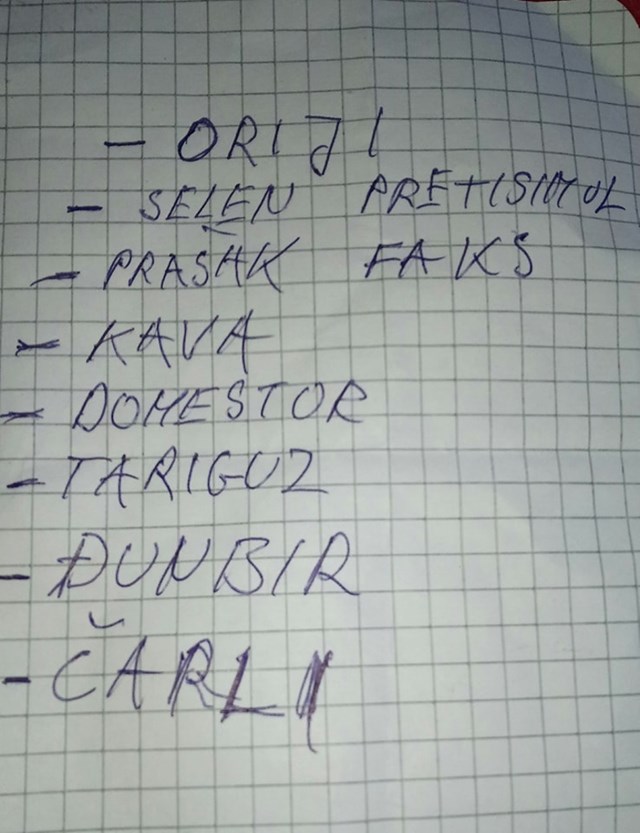 - ORIJI
- SELEN PRETISIMOL
- PRAŠAK FAKS
- KAVA
- DOMESTOR
- TARIGUZ
- ĐUNBIR
- ČARLI